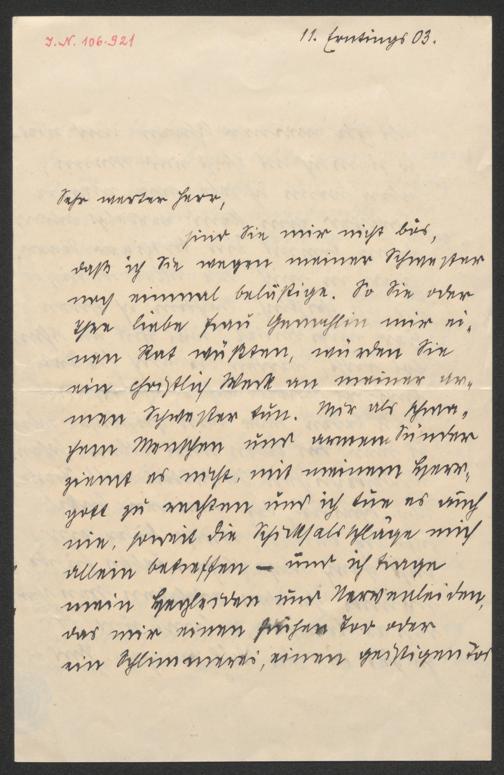 J.N. 106.921
11. Erntings 03.
Sehr werter Herr,
sind Sie mir nicht bös,
daß ich Sie wegen meiner Schwester
noch einmal belästige. So Sie oder
Ihre liebe Frau Gemahlin mir ei-
nen Rat wüßten, würden Sie
ein christlich Werk an meiner ar-
men Schwester tun. Mir als schwa-
chem Menschen und armen Sünder
ziemt es nicht, mit meinem Herr-
gott zu rechten und ich tue es auch
nie, soweit die Schicksalsschläge mich
allein betreffen – und ich trage
mein Herzleiden und Nervenleiden,
das mir einen frühen Tod oder
ein Schlimmerei, einen geistigen Tod